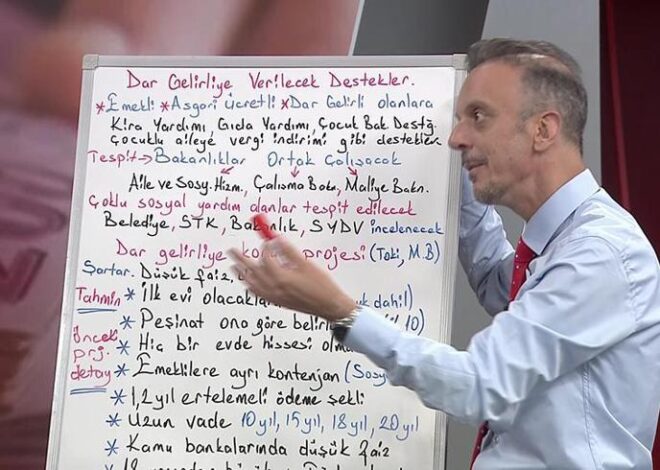 Dar Gelirliye Verilecek Destekler.
*Emekli *Asgari Ücretli *Dar Gelirli olanlara
Kira Yardımı, Gıda Yardımı, Çocuk Bak Destğ.
Çocuklu aileye vergi indirimi gibi destekler
Tespit→ Bakanlıklar Ortak Çalışacak
Aile ve Sosy. Hizm., Çalışma Bakn., Maliye Bakn.
Çoklu sosyal yardım alanlar tespit edilecek
Belediye, STK, Bakanlık, SYDV incelenecek
Dar gelirliye projesi (Toki, M.B)
Şartar. Düşük faiz,
Tahmin * İlk evi olacakla dahil)
* Peşinat ona göre belirle 10)
Öncek prj. detay * Hiç bir evde hissesi olma
* Emeklilere ayrı kontenjan (Sosy
* 1,2 yıl ertelemeli ödeme şekli
* Uzun vade 10 yıl, 15 yıl, 18 yıl, 20 yıl
* Kamu bankalarında düşük faiz